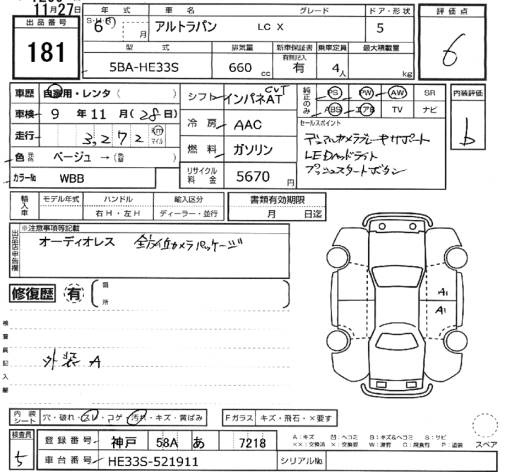 11月27日
出品番号 年式 車名 グレード ドア・形状 評価点
181 S・H・R 6年 月 アルトラパン LC X 5 6
型式 排気量 新車保証書 乗車定員 最大積載量
5BA-HE33S 660 cc 有 4人 kg
車歴 自家用・レンタ( ) シフト インパネAT CVT 純正のみ PS PW AW SR 内装評価
車検 9年 11月(28日) ABS エアB TV ナビ b
冷房 AAC セールスポイント
走行 3,272 km マイル デュアルカメラブレーキサポート
燃料 ガソリン LEDヘッドライト
色 ベージュ→( ) プッシュスタートボタン
カラーNo WBB リサイクル料金 5670円
輸入車 モデル年式 ハンドル 輸入区分 書類有効期限
年 右H・左H ディーラー・並行 月 日迄
※注意事項等記載
オーディオレス 全方位カメラパッケージ
修復歴 有 箇所
A1
A1
検査員記入欄
外装 A
内装シート 穴・破れ・スレ・コゲ・汚れ・キズ・黄ばみ Fガラス キズ・飛石・×要す
検査員 5 登録番号 神戸 58A あ 7218 スペア
車台番号 HE33S-521911 シリアルNo.